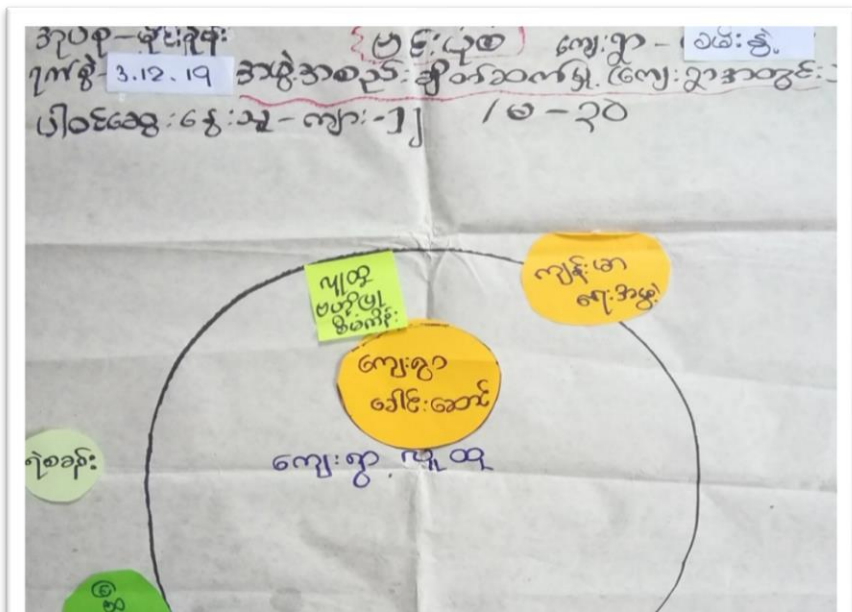 အုပ်စု-မိုင်းခုန်း (မူင်းယုစ) ကျေးရွာ -
ရက်စွဲ- 3.12.19 အဖွဲ့အစည်းချိတ်ဆက်မှု (ကျေးရွာအတွင်း
ပါဝင်ဆွေးနွေးသူ - ကျား-၅ / မ - ၃၀
လူထု
ဗဟိုပြု
စီမံကိန်း
ကျန်းမာ
ရေးအဖွဲ့
ကျေးရွာ
ခေါင်းဆောင်
ကျေးရွာ လူထု
ရဲစခန်း